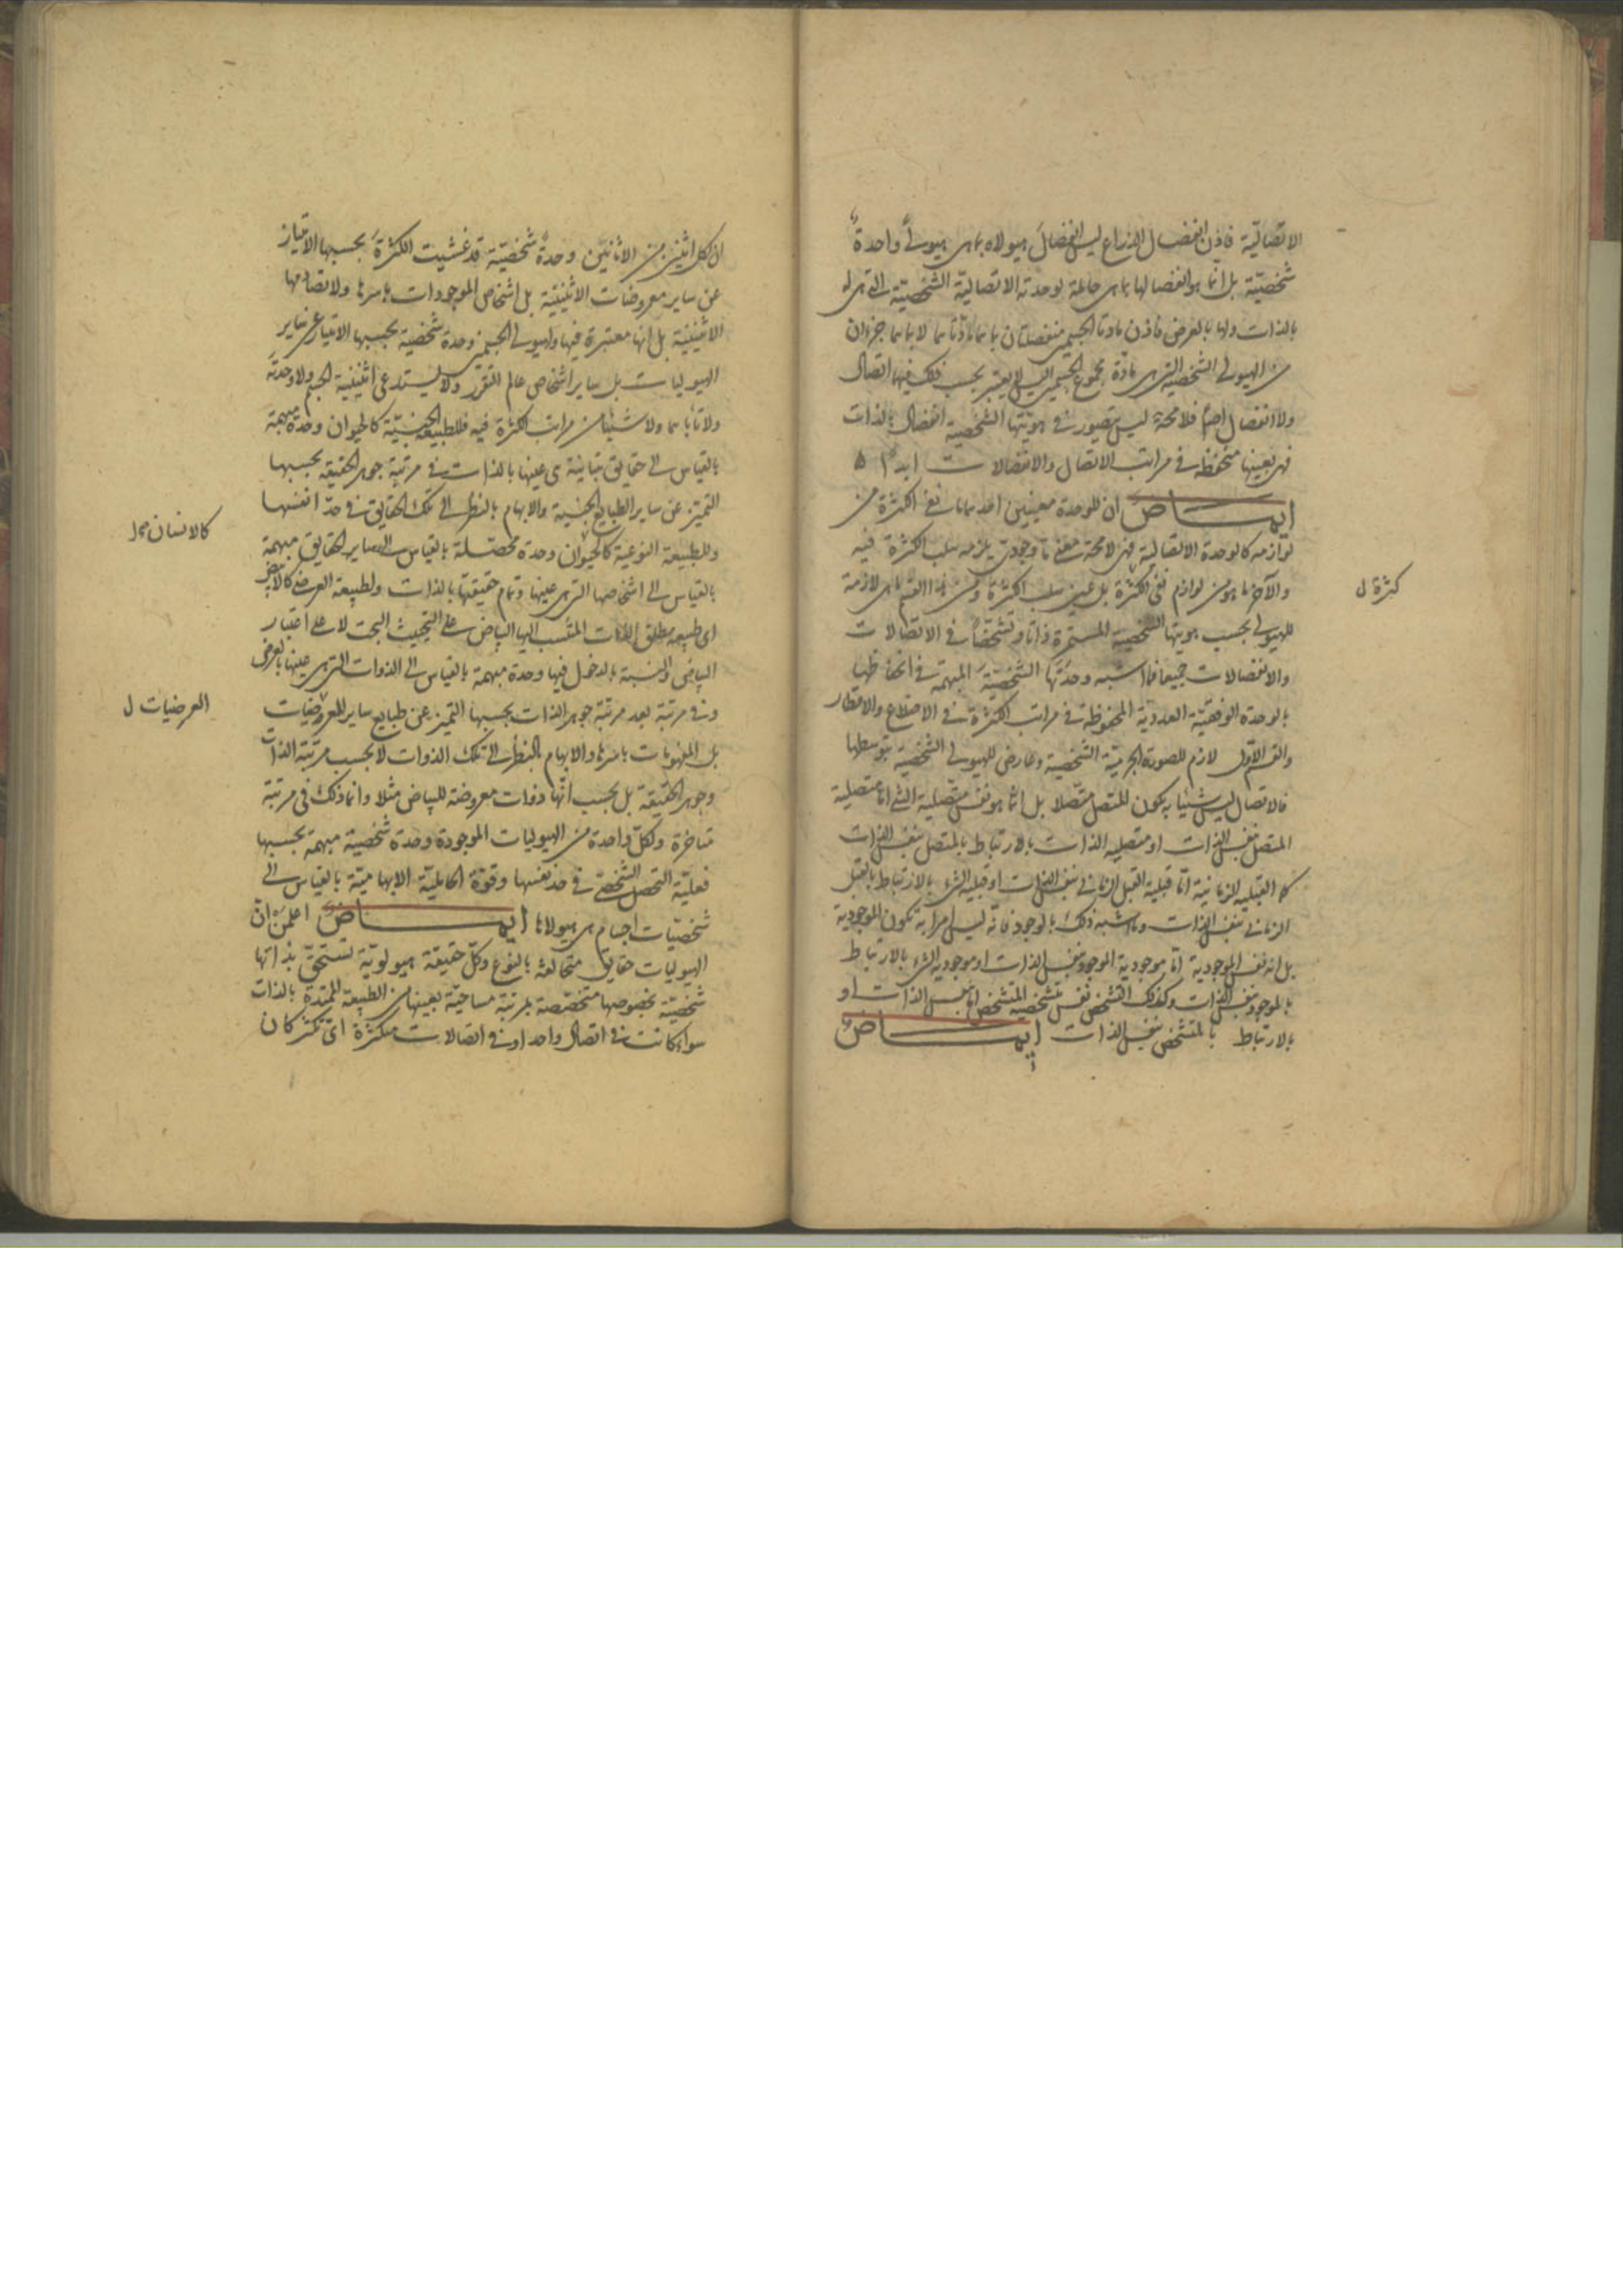 الاتصالية فاذن انفصال الذراع ليس انفصال هيولاه بما هى هيولى واحدة
شخصية بل انما هو انفصالها بما هى حاملة لوحدته الاتصالية الشخصية التى هى له
بالذات ولها بالعرض فاذن مادتا الجسمين منفصلتان بما هما مادتاهما لا بما هما جزءان
من الهيولى الشخصية التى هى مادة مجموع الجسمين التى لا يعتبر بحسب ذلك فيها اتصال
ولا انفصال اصلا فلا محة ليس يتصور فى هويتها الشخصية انفصال بالذات
فهى بعينها منحفظة فى مراتب الاتصال والانفصالات ابدا ه
ايمـــاض ان للوحدة معنيين احدهما ما نفى الكثرة من
لوازمه كالوحدة الاتصالية فهى لا محة معنى ما وجودى يلزمه سلب الكثرة فيه
والآخر ما هو من لوازم نفى الكثرة بل عين سلب الكثرة ومن هذا القسم ما هى لازمة
كثرة ل
للهيولى بحسب هويتها الشخصية المستمرة ذاتا وتشخصا فى الاتصالات
والانفصالات جميعا فما اشبه وحدتها الشخصية المبهمة فى انحفاظها
بالوحدة الوفقية العددية المحفوظة فى مراتب الكثرة فى الاضلاع والاقطار
والقسم الاول لازم للصورة الجرمية الشخصية وعارض للهيولى الشخصية بتوسطها
فالاتصال ليس شيئا به يكون المتصل متصلا بل انما هو نفس متصلية الشئ اما متصلية
المتصل بنفس الذات او متصلية الذات بالارتباط بالمتصل بنفس الذات
كما القبلية الزمانية اما قبلية القبل الزمانى بنفس الذات او قبلية الشئ بالارتباط بالقبل
الزمانى بنفس الذات وما اشبه ذلك بالوجود فانه ليس امرا به تكون الموجودية
بل انه نفس الموجودية اما موجودية الموجود بنفس الذات او موجودية الشئ بالارتباط
بالموجود بنفس الذات وكذلك التشخص نفس متشخصية المتشخص اما بنفس الذات او
بالارتباط بالمتشخص بنفس الذات ايمـــاض
ان لكل اثنين من الاثانين وحدة شخصية قد غشيت الكثرة بحسبها الامتياز
عن ساير معروضات الاثنينية بل اشخاص الموجودات باسرها ولا تصادمها
الاثنينية بل انها معتبرة فيها ولهيولى الجسمين وحدة شخصية بحسبها الامتياز عن ساير
الهيوليات بل ساير اشخاص عالم التقرر ولا يستدعى اثنينية الجسم ولا وحدته
ولا تاباهما ولا شيئا من مراتب الكثرة فيه فللطبيعة الجنسية كالحيوان وحدة مبهمة
بالقياس الى حقايق متباينة هى عينها بالذات فى مرتبة جوهر الحقيقة بحسبها
التميز عن ساير الطبايع الجنسية والابهام بالنظر الى تلك الحقايق فى حد انفسها
وللطبيعة النوعية كالحيوان وحدة محصلة بالقياس الى ساير الحقايق مبهمة
كالانسان ل
بالقياس الى اشخاصها التى هى عينها وتمام حقيقتها بالذات ولطبيعة العرضى كالابيض
اى طبيعة مطلق الذات المنتسب اليها البياض على التحيث البحت لا على اعتبار
البياض والنسبة بالدخول فيها وحدة مبهمة بالقياس الى الذوات التى هى عينها بالعرض
وفى مرتبة بعد مرتبة جوهر الذات بحسبها التميز عن طبايع ساير المعروضيات
العرضيات ل
بل المفهومات باسرها والابهام بالنظر الى تلك الذوات لا بحسب مرتبة الذات
وجوهر الحقيقة بل بحسب انها ذوات معروضة للبياض مثلا وانما ذلك فى مرتبة
متاخرة ولكل واحدة من الهيوليات الموجودة وحدة شخصية مبهمة بحسبها
فعلية التحصل الشخصى فى حد نفسها وقوة الحاملية الابهامية بالقياس الى
شخصيات اجسام هى هيولاها ايمـــاض اعلمن ان
الهيوليات حقايق متخالفة بالنوع وكل حقيقة هيولوية تستحق بذاتها
شخصية بخصوصها متخصصة بمرتبة مساحية بعينها من الطبيعة الممتدة بالذات
سواء كانت فى اتصال واحد او فى اتصالات متكثرة اى تكثر كان